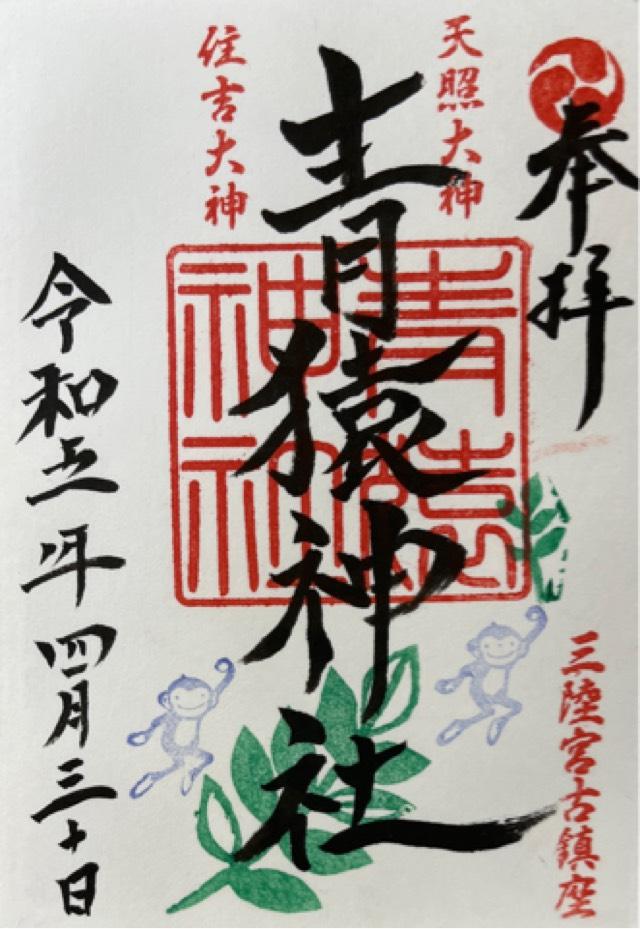 奉拝
天照大神
青猿神社
住吉大神
青猿神社
三陸宮古鎮座
令和五年四月三十日